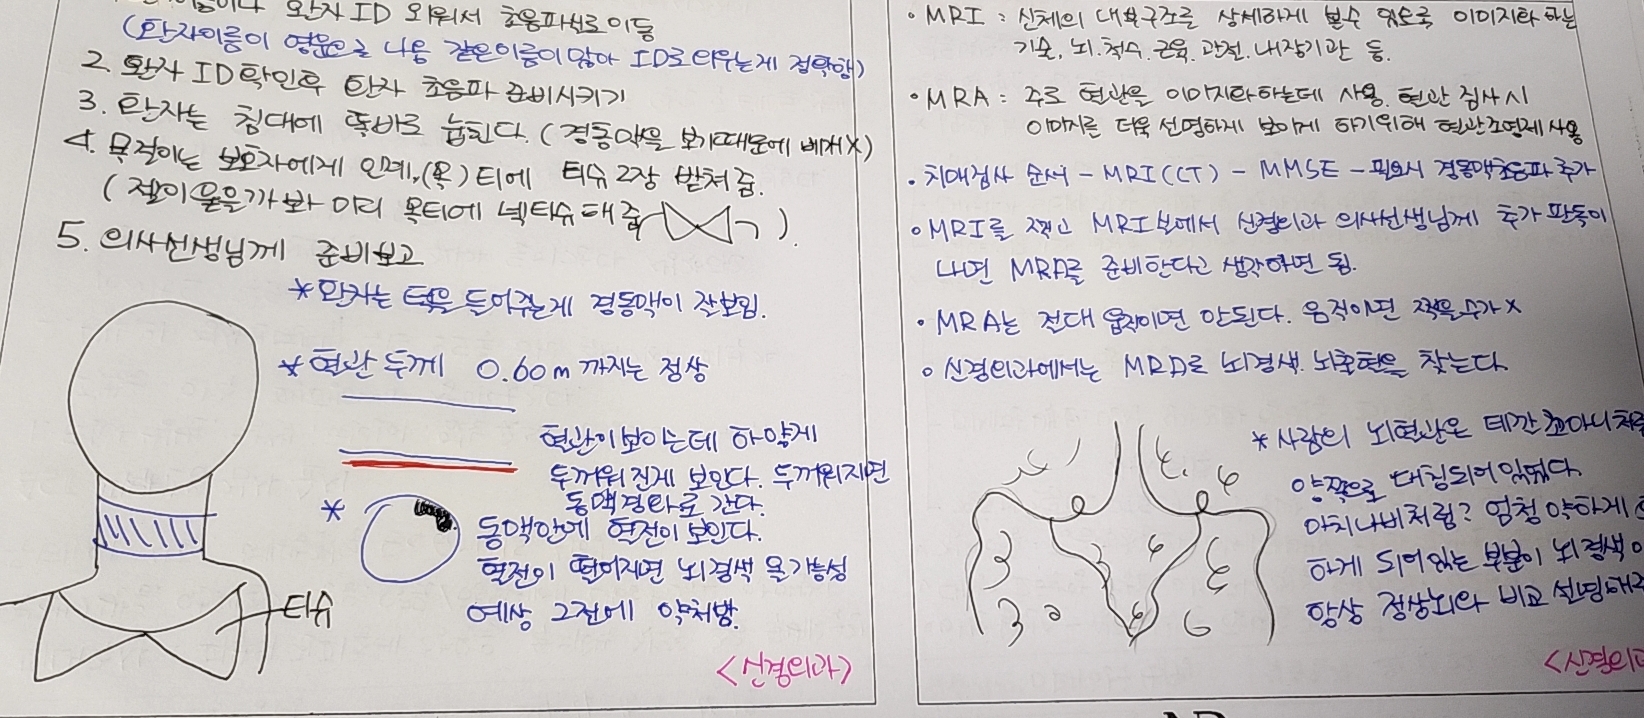 환자 ID 외워서 초음파실로 이동
(환자이름이 영문으로 나옴 같은이름이 많아 ID로 외우는게 정확함)
2. 환자 ID 확인후 환자 초음파 준비시키기
3. 환자는 침대에 똑바로 눕힌다. (경동맥을 보기때문에 베개X)
4. 목걸이는 보호자에게 인계, (목)티에 티슈 2장 받쳐줌.
(젤이 묻을까봐 미리 목티에 넥티슈 대줌 ).
5. 의사선생님께 준비보고
*환자는 턱을 들어주는게 경동맥이 잘보임.
*혈관 두께 0.60m 까지는 정상
혈관이 보이는데 하얗게
두꺼워진게 보인다. 두꺼워지면
동맥경화로 간다.
* 동맥안에 혈전이 보인다.
혈전이 떨어지면 뇌경색 올가능성
예상 그전에 약처방.
티슈
<신경외과>
• MRI : 신체의 내부구조를 상세하게 볼수 있도록 이미지화 하는
기술, 뇌. 척수. 근육. 관절. 내장기관 등.
• MRA : 주로 혈관을 이미지화하는데 사용. 혈관 검사시
이미지를 더욱 선명하게 보이게 하기위해 혈관조영제 사용
• 치매검사 순서 - MRI(CT) - MMSE - 필요시 경동맥초음파 추가
• MRI를 찍고 MRI실에서 신경외과 의사선생님께 추가 판독이
나면 MRA를 준비한다고 생각하면 됨.
• MRA는 절대 움직이면 안된다. 움직이면 찍을수가X
• 신경외과에서는 MRA로 뇌경색. 뇌출혈을 찾는다.
*사람의 뇌혈관은 데칼코마니처럼
양쪽으로 대칭되어있었다.
마치나비처럼? 엄청 약하게
하게 되어있는 부분이 뇌경색
항상 정상뇌와 비교 설명해
<신경외과